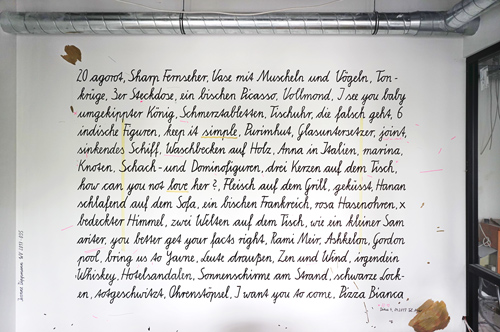 20 agorot, Sharp Fernseher, Vase mit Muscheln und Vögeln, Ton-
krüge, 3er Steckdose, ein bischen Picasso, Vollmond, I see you baby
umgekippter König, Schmerztabletten, Tischuhr, die falsch geht, 6
indische Figuren, keep it simple, Purimhut, Glasuntersetzer, joint,
sinkendes Schiff, Waschbecken auf Holz, Anna in Italien, marina,
Knoten, Schach- und Dominofiguren, drei Kerzen auf dem Tisch,
how can you not love her?, Fleisch auf dem Grill, geküsst, Hanan
schlafend auf dem Sofa, ein bischen Frankreich, rosa Hasenohren, x
bedeckter Himmel, zwei Welten auf dem Tisch, wie ein kleiner Sam
ariter, you better get your facts right, Rami Meir, Ashkelon, Gordon
pool, bring us to Yavne, Leute draußen, Zen und Wind, irgendein
Whiskey, Hotelsandalen, Sonnenschirme am Strand, schwarze Lock-
en, totgeschwitzt, Ohrenstöpsel, I want you to come, Pizza Bianca